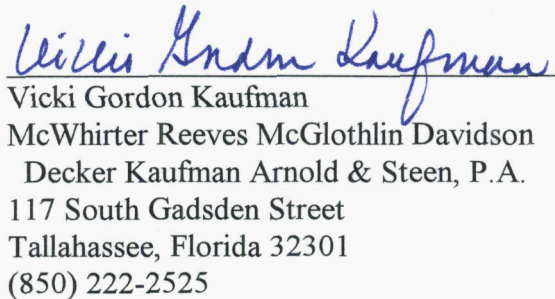 Vicki Gordon Kaufman
Vicki Gordon Kaufman
McWhirter Reeves McGlothlin Davidson
Decker Kaufman Arnold & Steen, P.A.
117 South Gadsden Street
Tallahassee, Florida 32301
(850) 222-2525